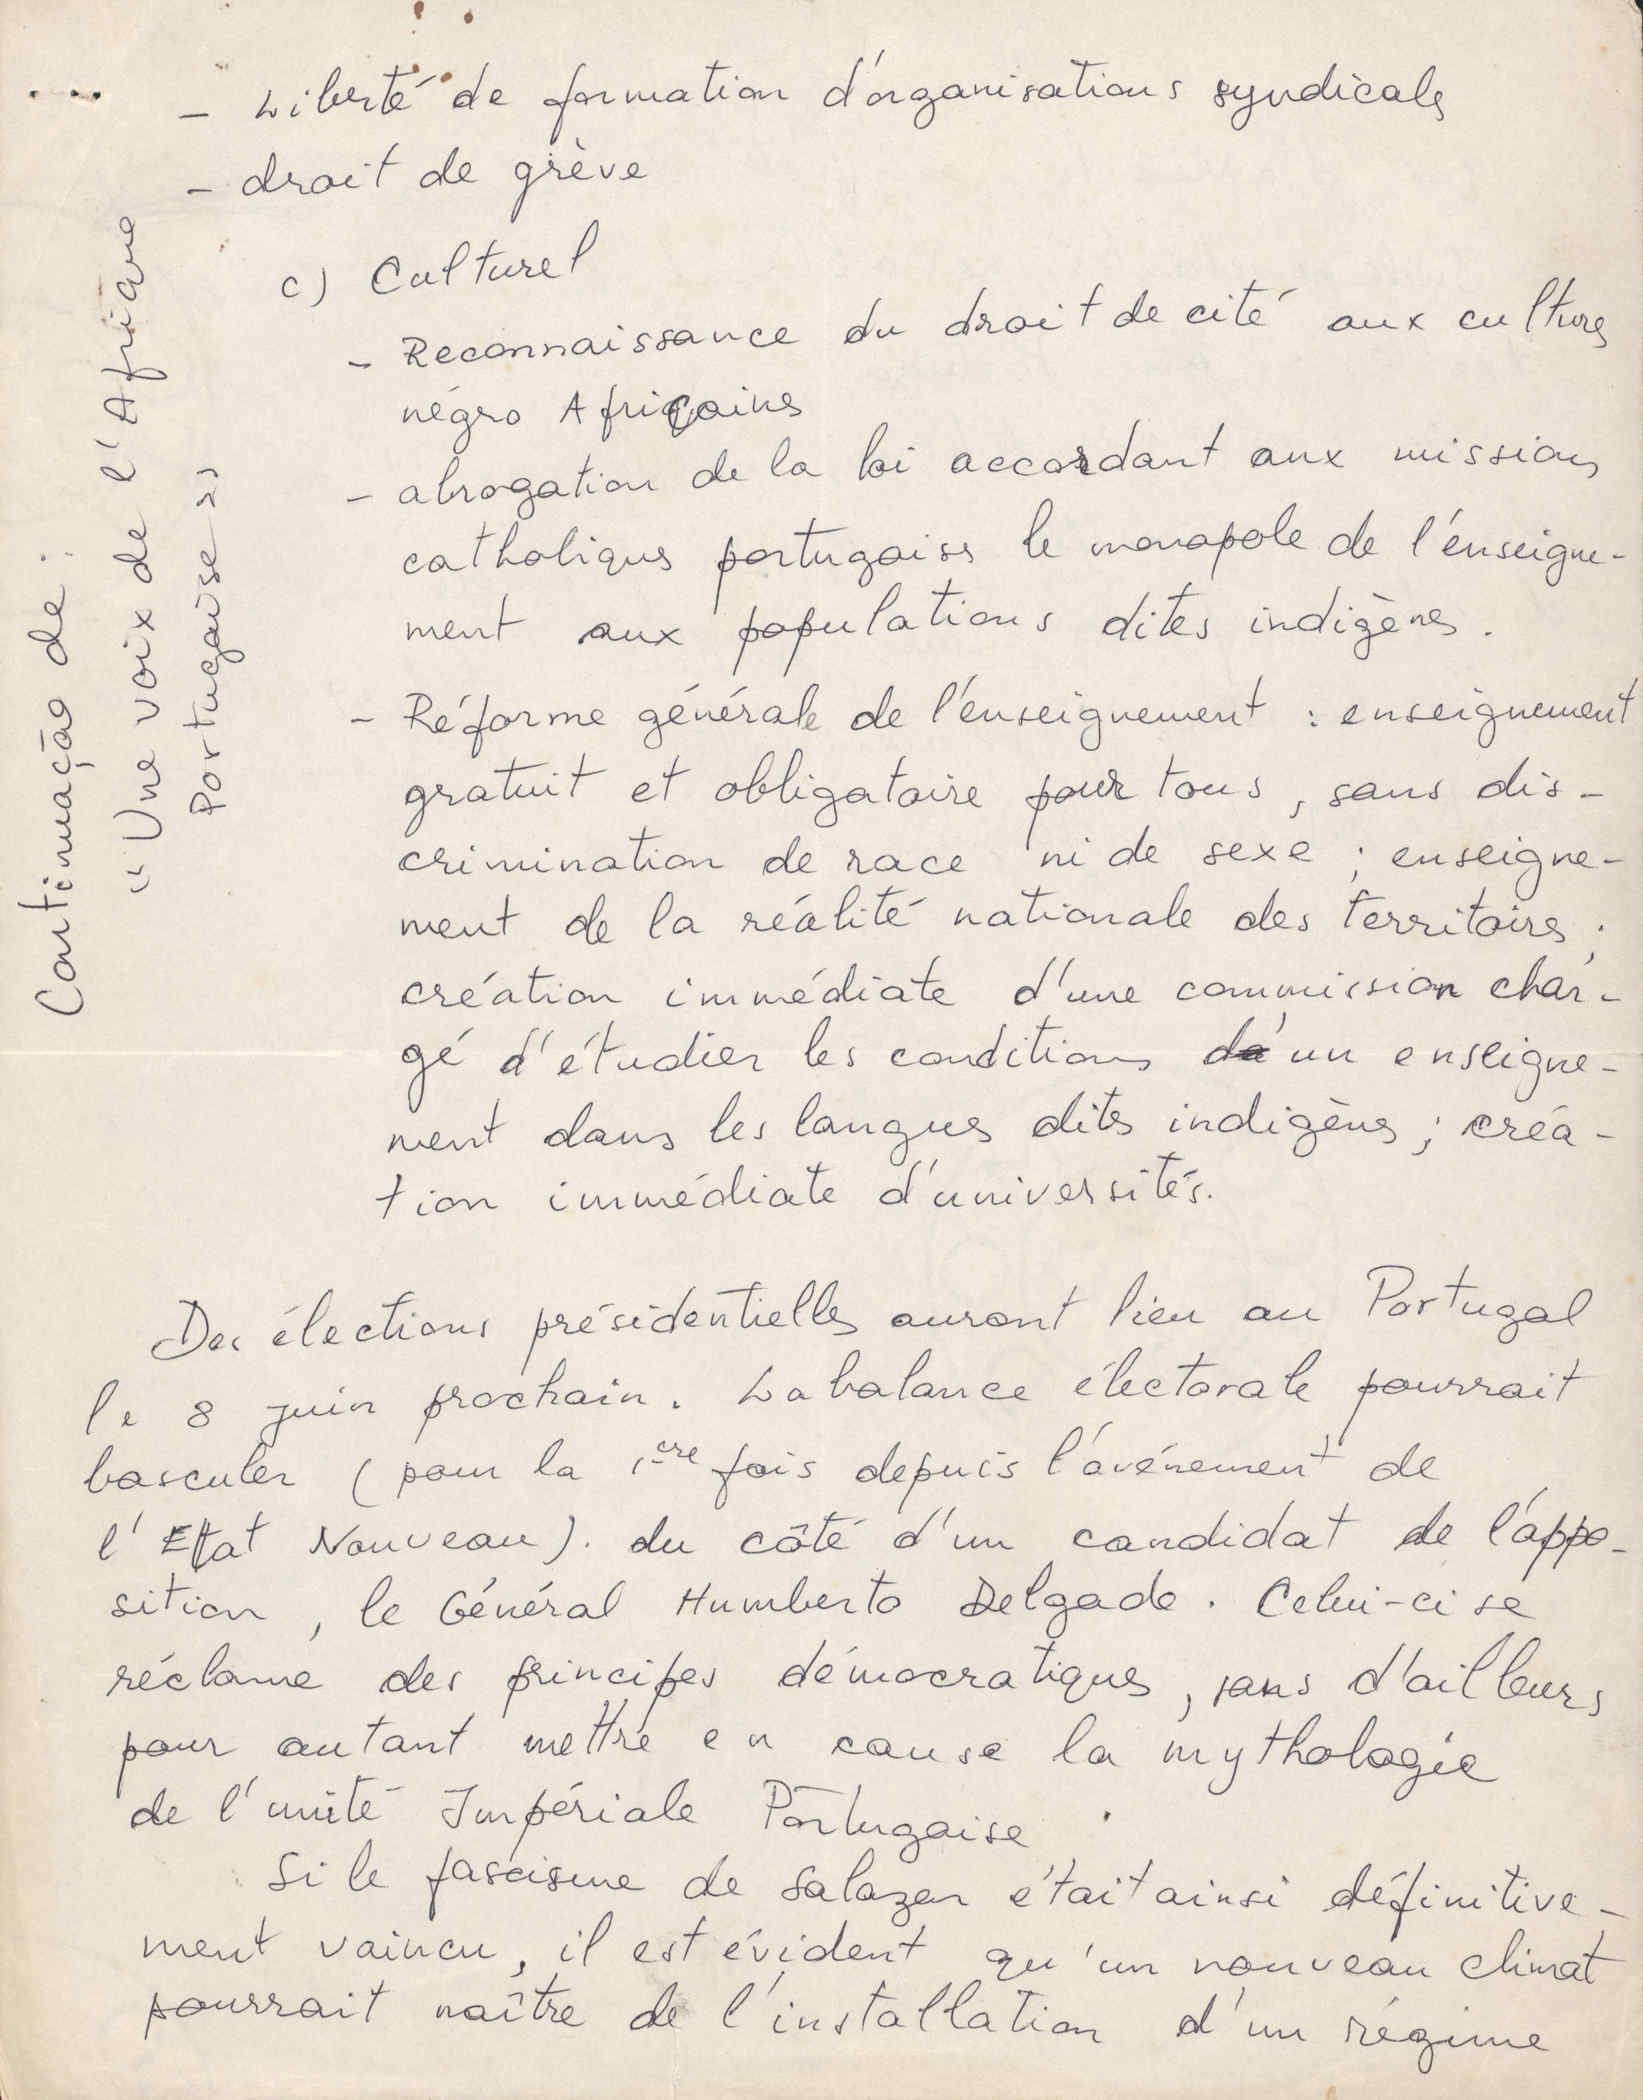 ...
- Liberté de formation d'organisations syndicales
- droit de grève
c) Culturel
- Reconnaissance du droit de cité aux cultures
négro Africaines
- abrogation de la loi accordant aux missions
catholiques portugaises le monopole de l'enseigne-
ment aux populations dites indigènes.
- Réforme générale de l'enseignement : enseignement
gratuit et obligatoire pour tous, sans dis-
crimination de race ni de sexe ; enseigne-
ment de la réalité nationale des territoires ;
création immédiate d'une commission char-
gé d'étudier les conditions d'un enseigne-
ment dans les langues dites indigènes ; créa-
tion immédiate d'universités.
Des élections présidentielles auront lieu au Portugal
le 8 juin prochain. La balance électorale pourrait
basculer (pour la 1ère fois depuis l'avénement de
l'Etat Nouveau). du côté d'un candidat de l'oppo-
sition, le Général Humberto Delgado. Celui-ci se
réclame des principes démocratiques, sans d'ailleurs
pour autant mettre en cause la mythologie
de l'unité Impériale Portugaise.
Si le fascisme de Salazar était ainsi définitive-
ment vaincu, il est évident qu'un nouveau climat
pourrait naître de l'installation d'un régime
Continuação de :
"Une voix de l'Afrique
Portugaise"